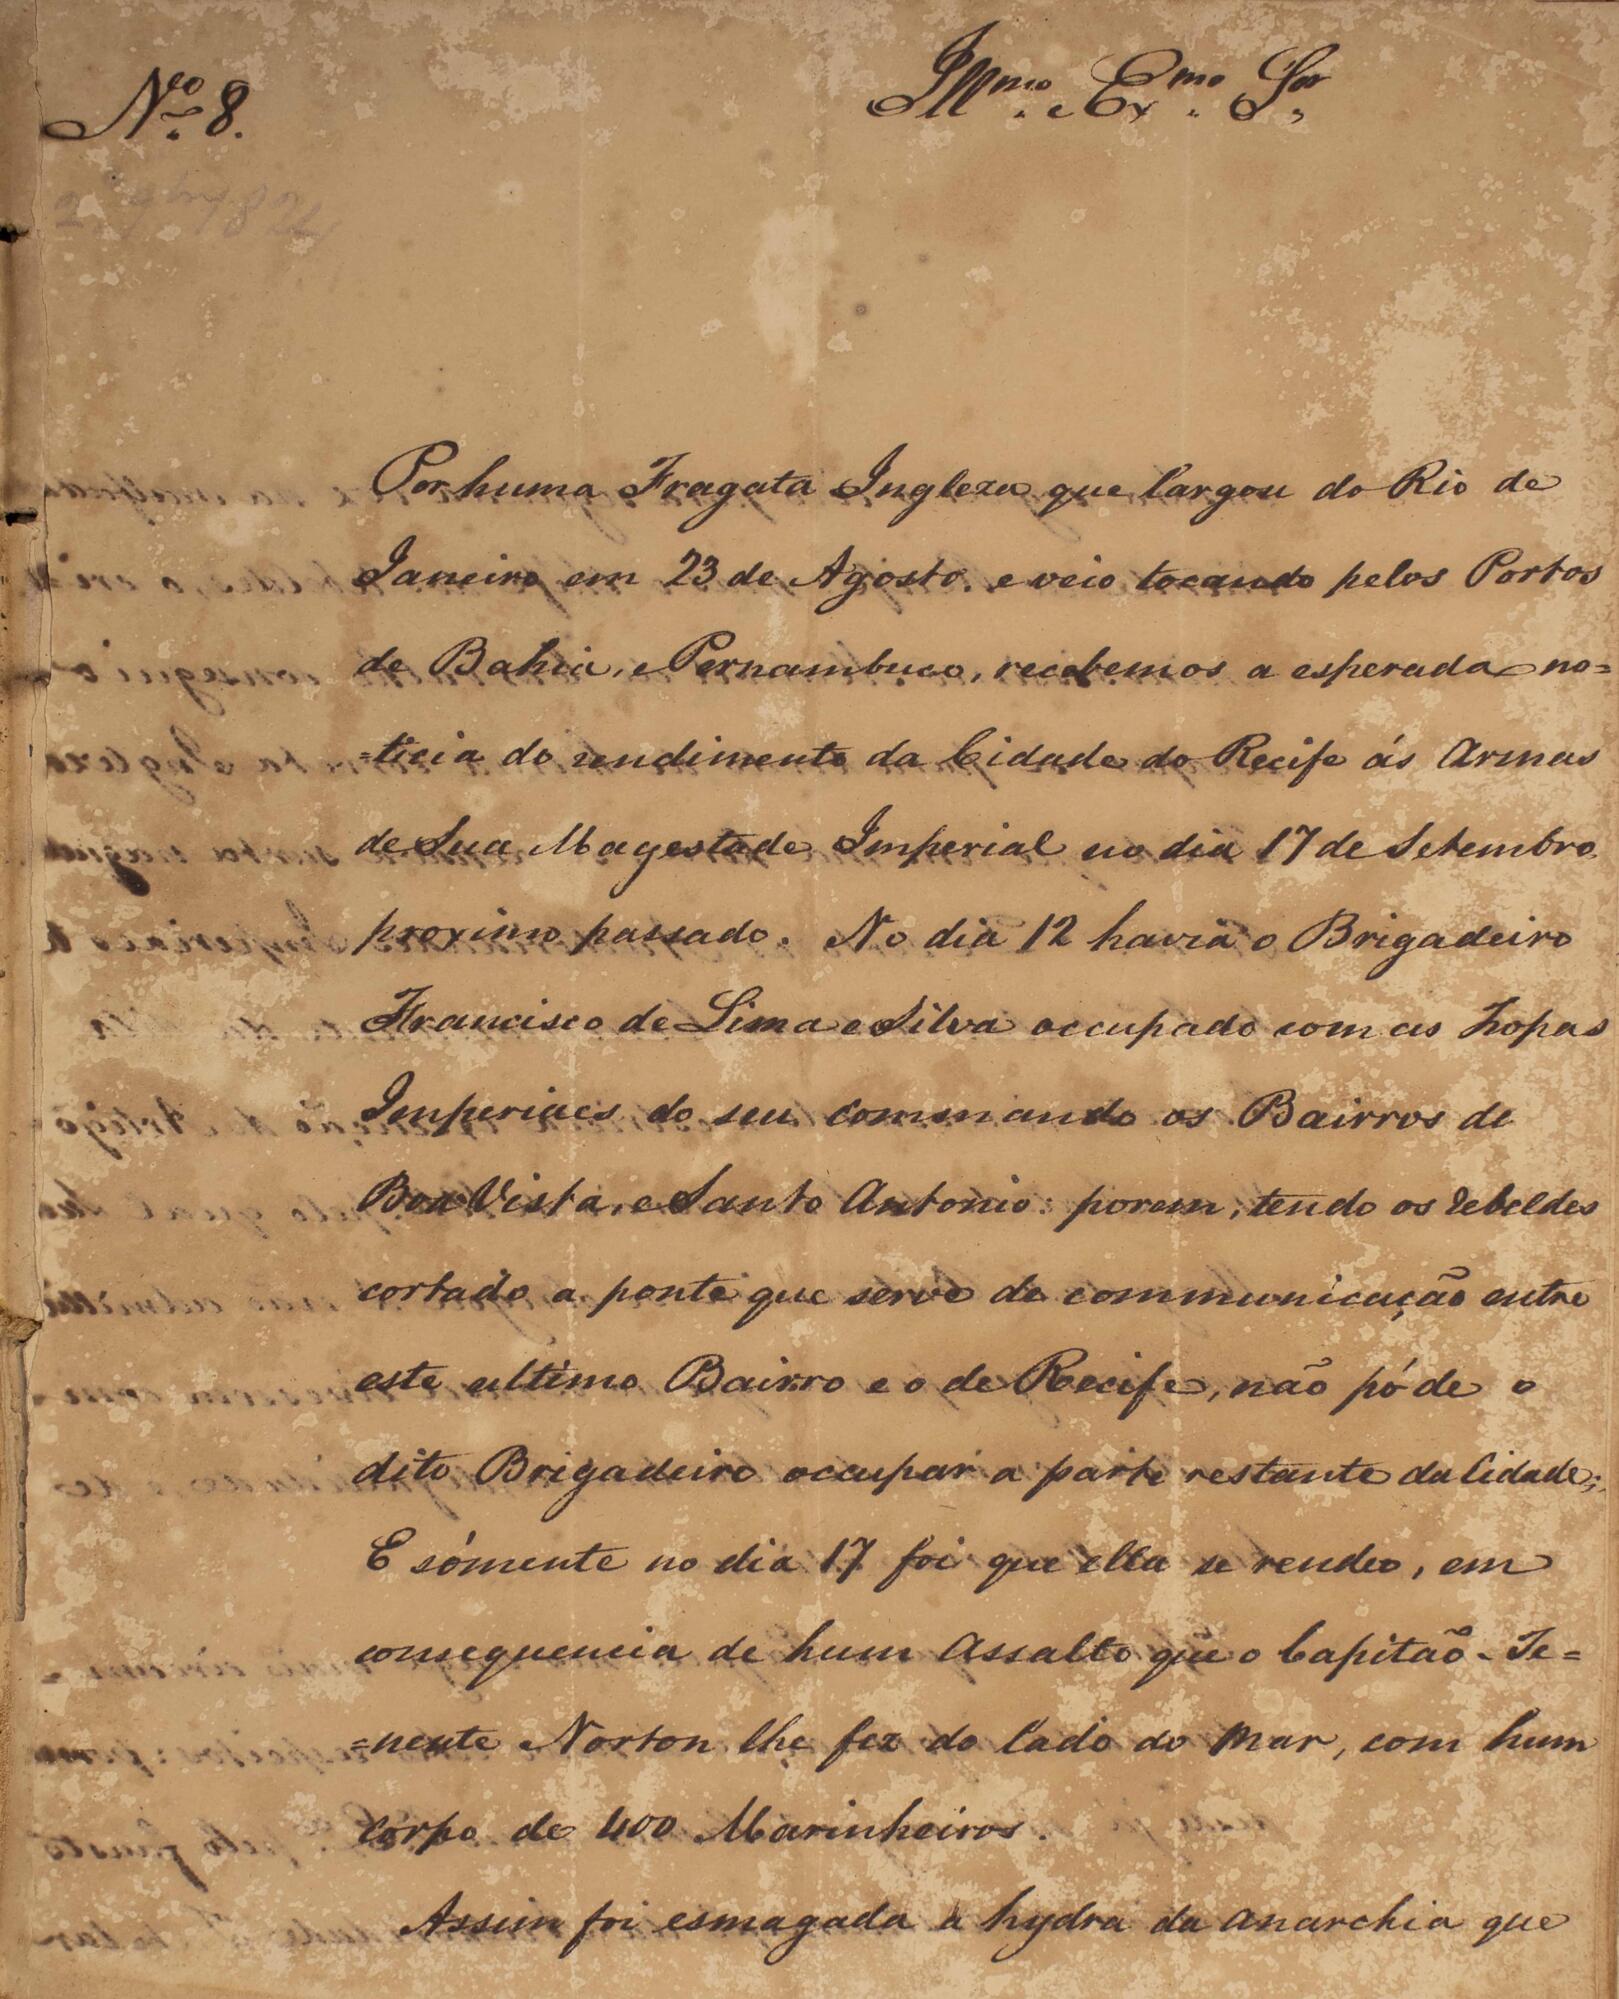 Nº 8.
Illmo. e Exmo. Sor,
Por huma Fragata Ingleza que largou do Rio de
Janeiro em 23 de Agosto. e veio tocando pelos Portos
de Bahia, e Pernambuco, recebemos a esperada no=
=ticia do rendimento da Cidade do Recife ás Armas
de Sua Magestade Imperial no dia 17 de Setembro
proximo passado. No dia 12 havia o Brigadeiro
Francisco de Lima e Silva occupado com as Tropas
Imperiaes do seu commando os Bairros de
Boa Vista, e Santo Antonio: porem, tendo os rebeldes
cortado a ponte que serve de communicação entre
este ultimo Bairro e o de Recife, não póde o
dito Brigadeiro occupar a parte restante da Cidade;
E sómente no dia 17 foi que ella se rendeo, em
consequencia de hum Assalto que o Capitão-Te=
=nente Norton lhe fez do lado do mar, com hum
corpo de 400 Marinheiros.
Assim foi esmagada a hydra da anarchia que